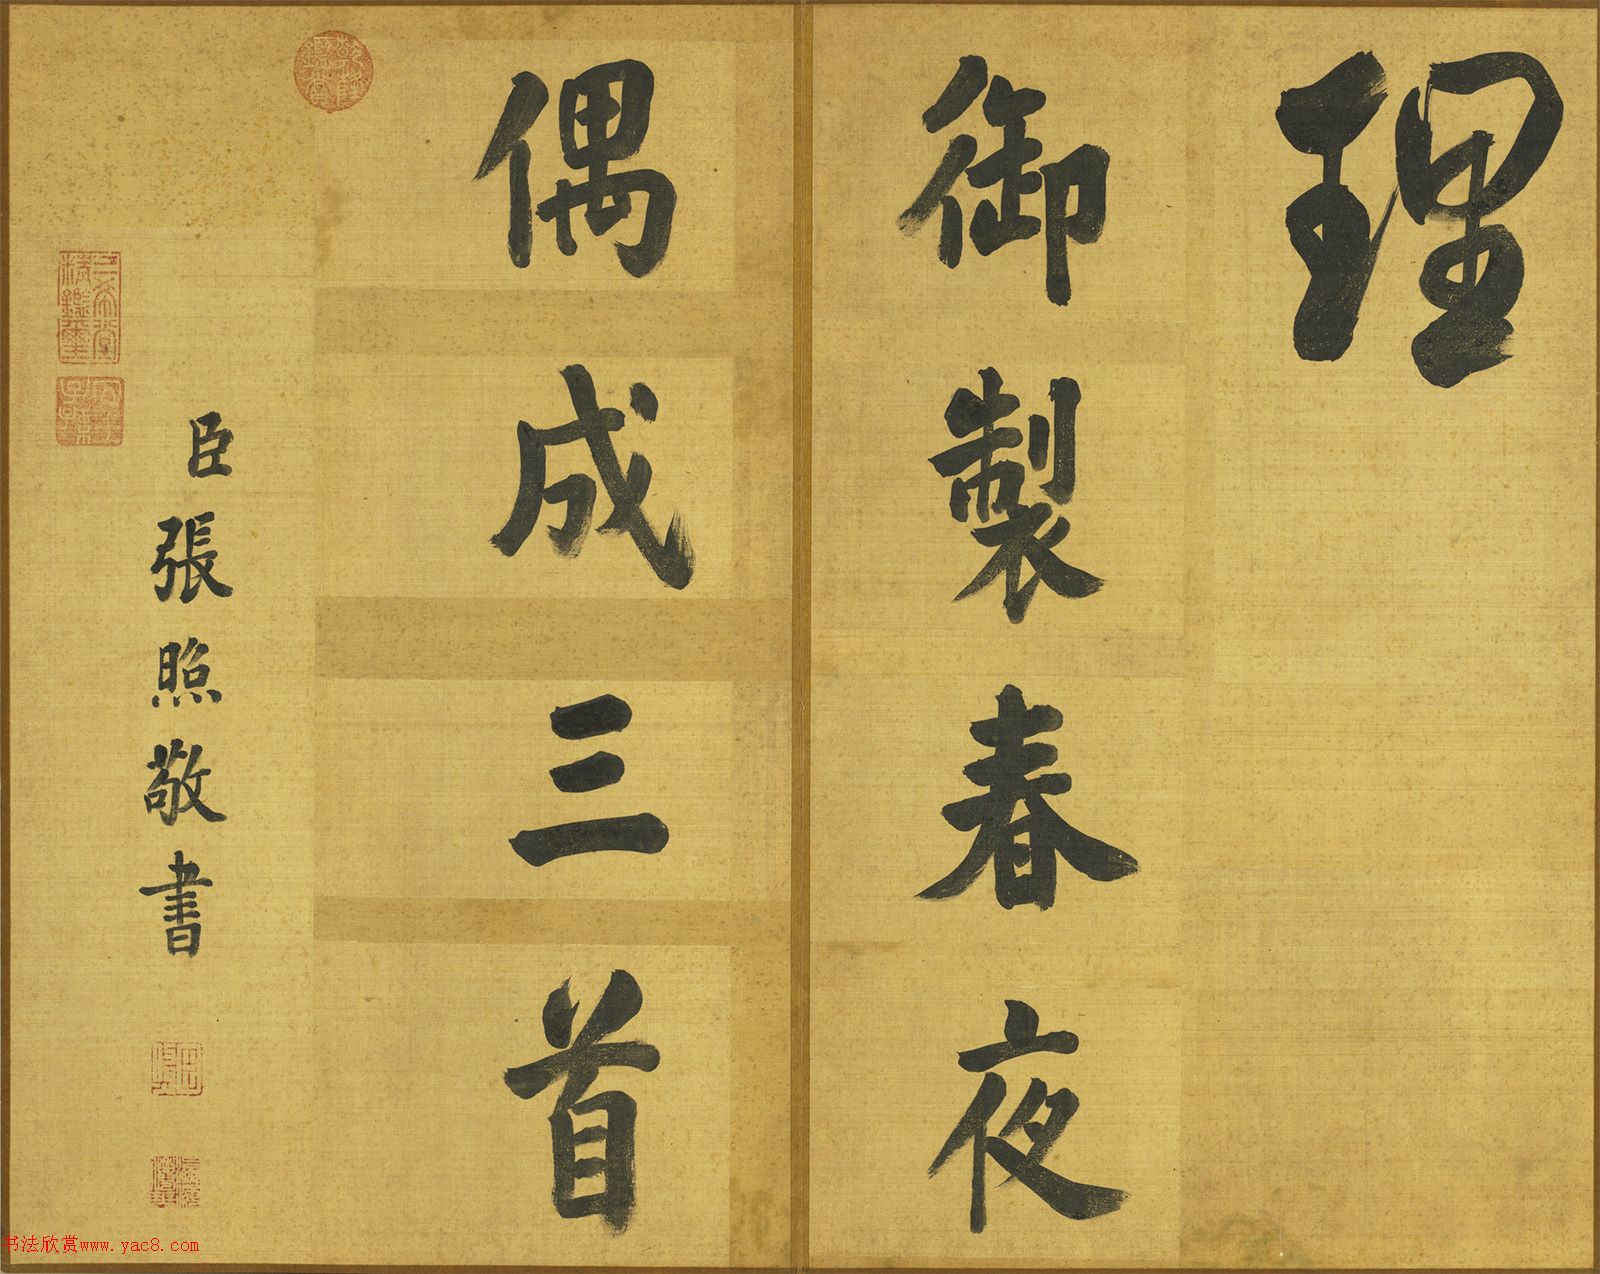 理
御製春夜
偶成三首
臣張照敬書
三希堂
精鑑璽
书法欣赏www.yac8.com